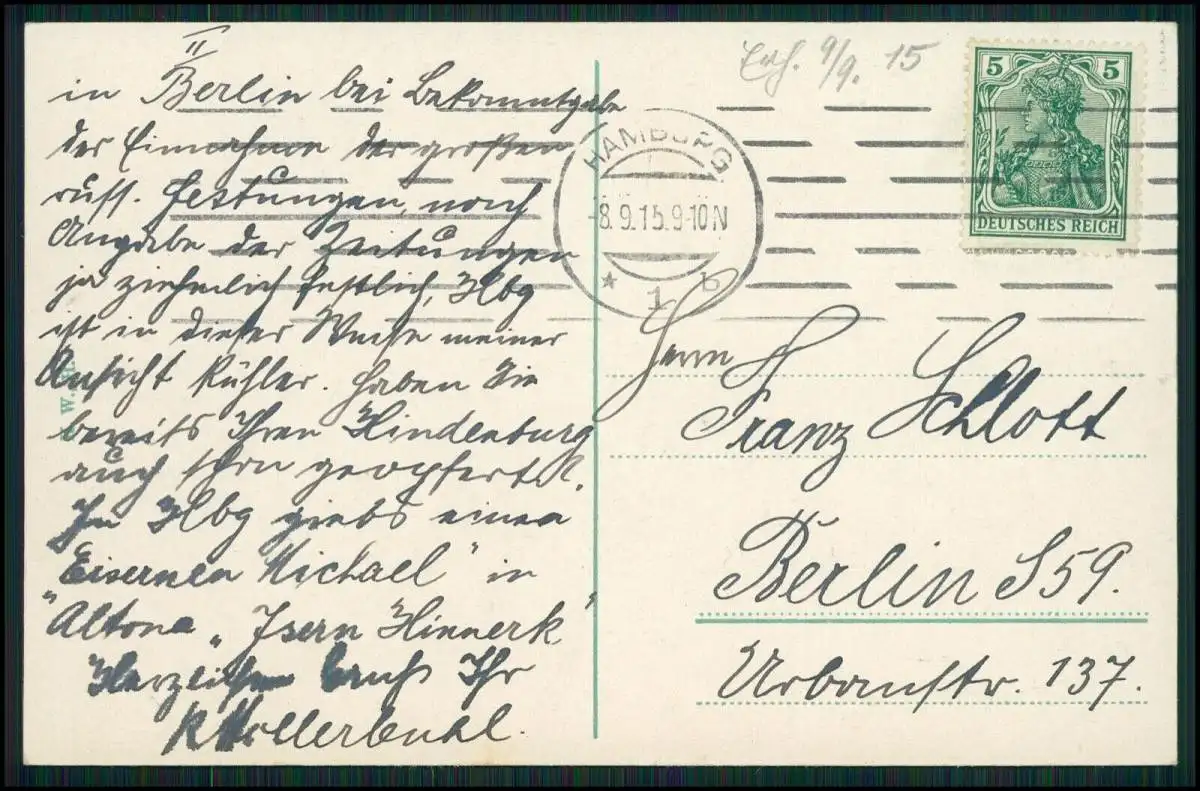 II
in Berlin bei Bekanntgabe
der Einnahme der großen
russ. Festungen, nach
Angabe der Zeitungen
ja ziehmlich festlich, Hbg
ist in dieser Weise meiner
Ansicht kühler. Haben Sie
bereits Ihren Hindenburg
auch schon geopfert.
In Hbg giebts einen
"Eisernen Michael" in
Altona "Isern Hinnerk"
Herzlichen Gruß Ihr
9/9. 15
5 5
DEUTSCHES REICH
HAMBURG
-8.9.15.9-10N
* 1 b
Herrn
Franz Schlott
Berlin S59.
Urbanstr. 137.
W.